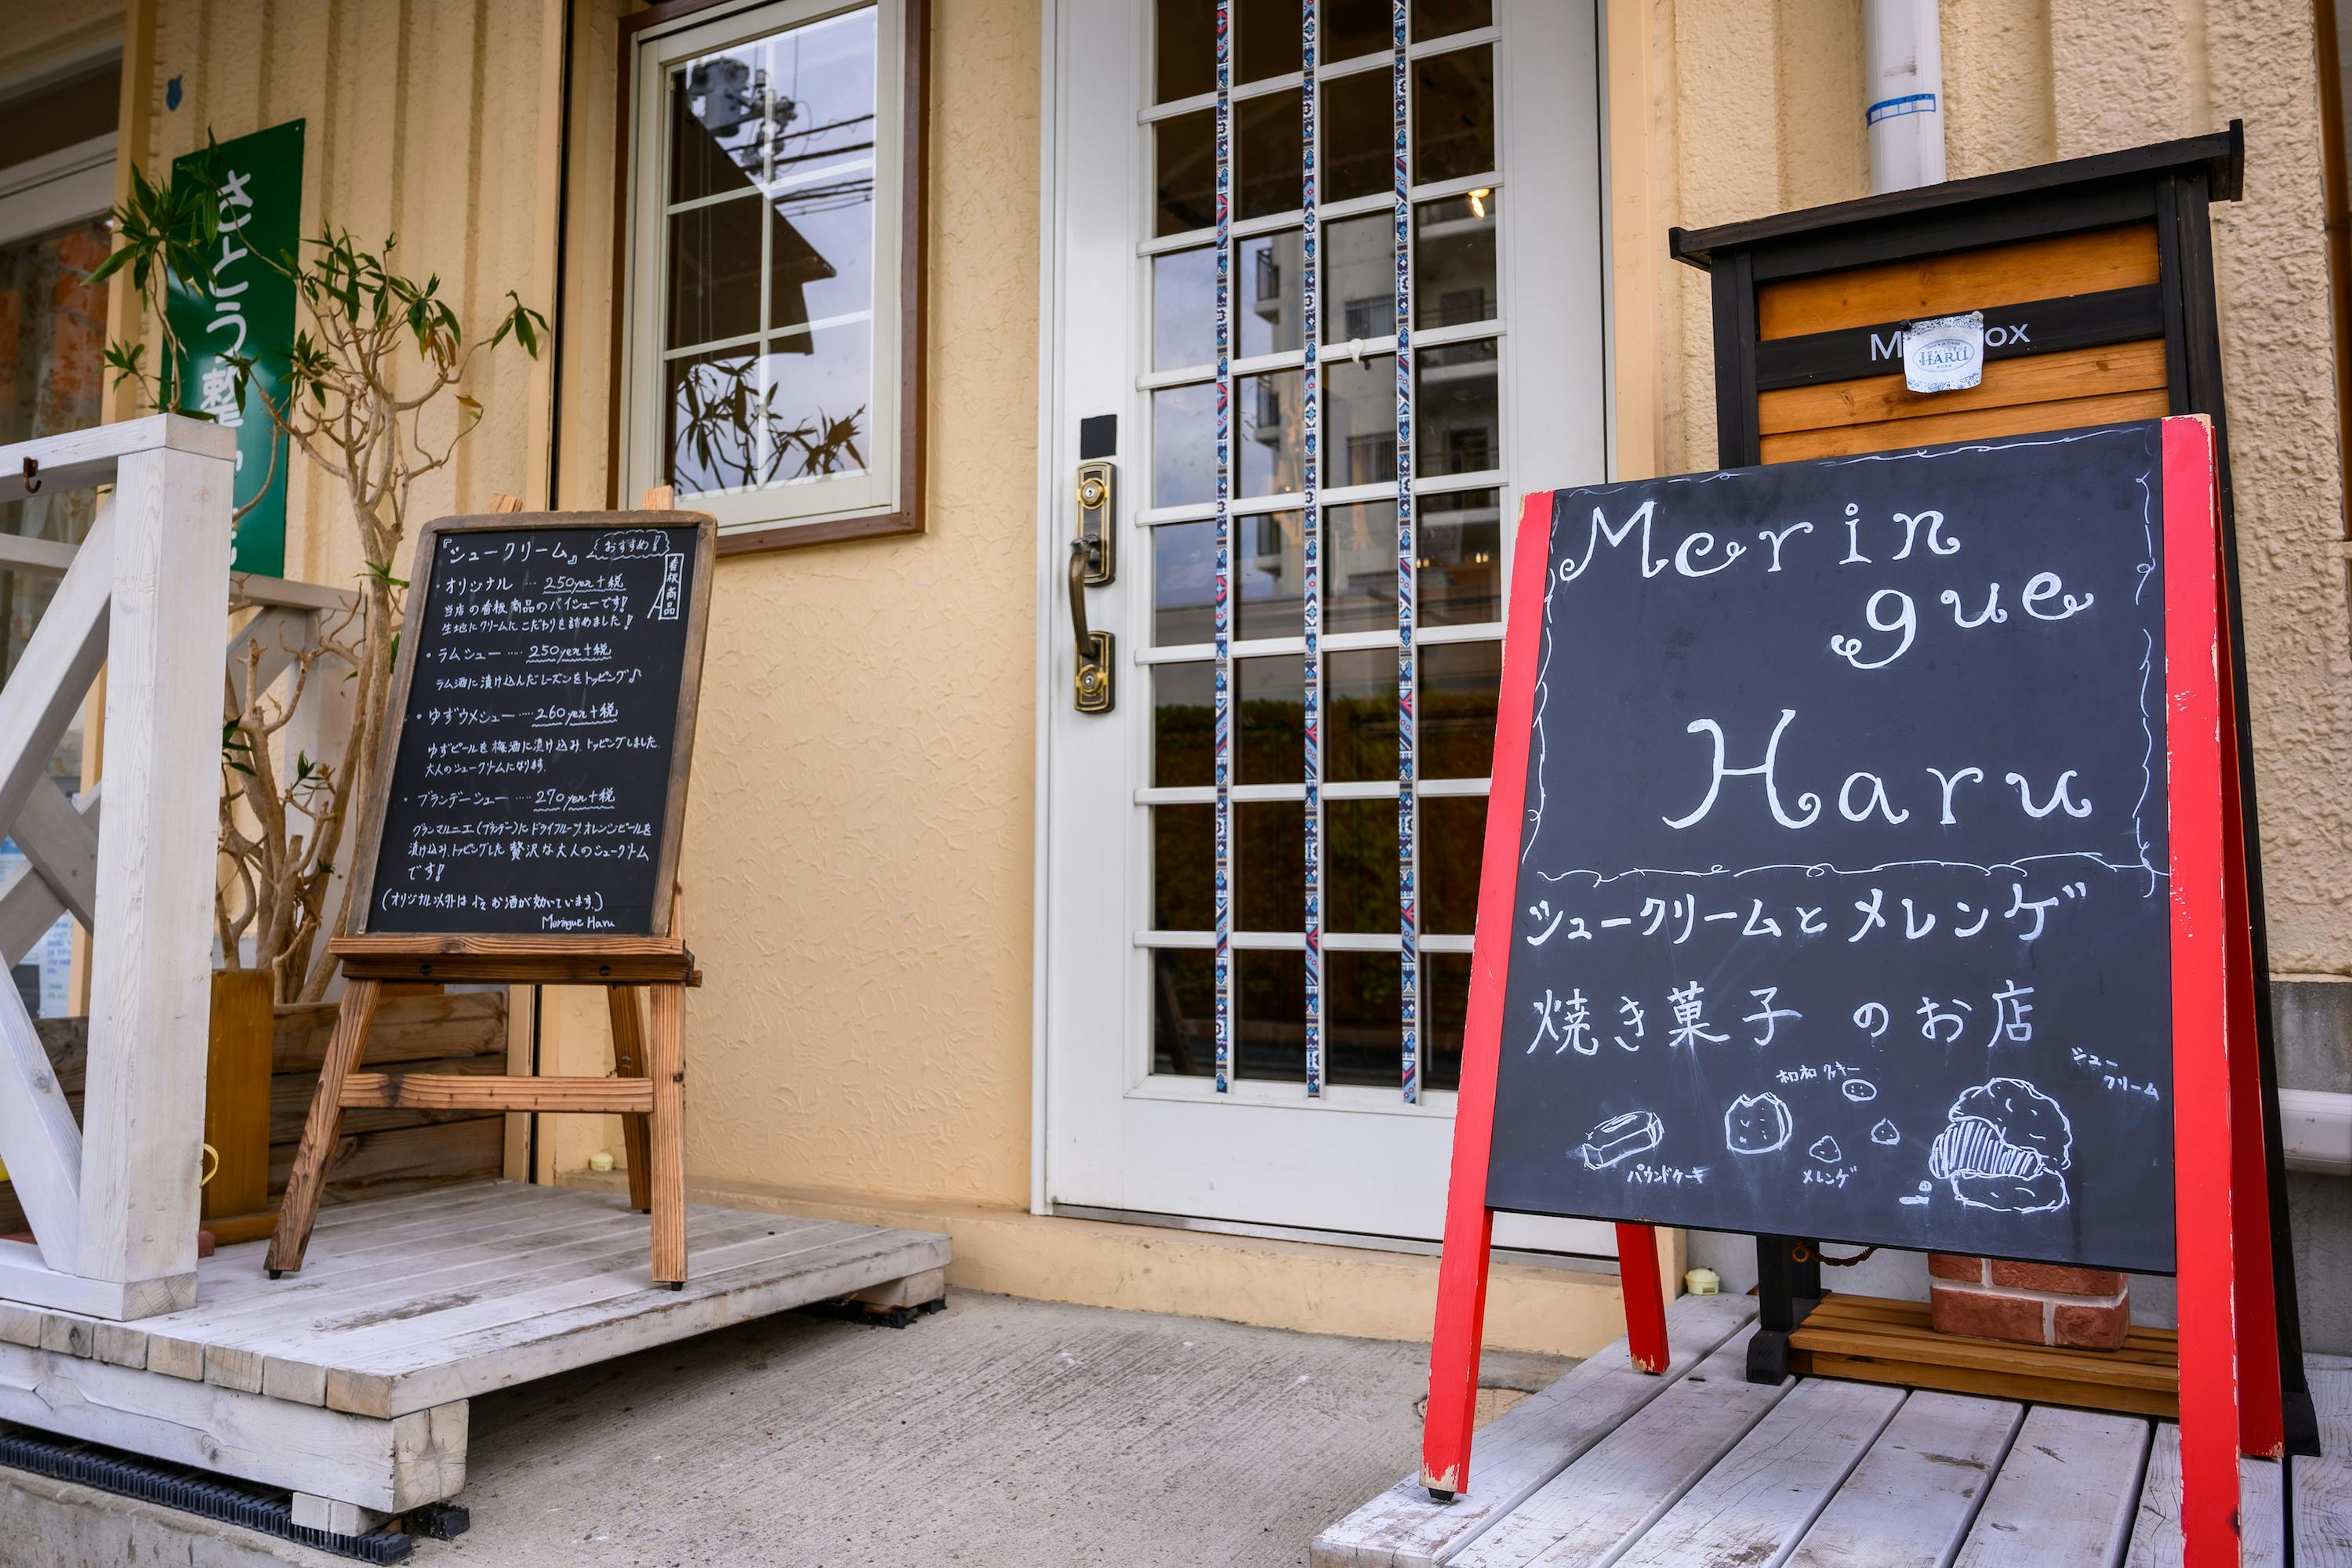 さとう整
『シュークリーム』 おすすめ!
看板商品
・オリジナル … 250yen+税
当店の看板商品のパイシューです!
生地にクリームにこだわりを詰めました!
・ラムシュー …… 250yen+税
ラム酒に漬け込んだレーズンをトッピング♪
・ゆずウメシュー …… 260yen+税
ゆずピールを梅酒に漬け込み、トッピングしました。
大人のシュークリームになります。
・ブランデーシュー …… 270yen+税
グランマルニエ(ブランデー)にドライフルーツ、オレンジピールを
漬け込み、トッピングした贅沢な大人のシュークリーム
です!
(オリジナル以外は お酒が効いています。)
Meringue Haru
HARU
Merin
gue
Haru
シュークリームとメレンゲ
焼き菓子のお店
シュー
クリーム
和和クッキー
パウンドケーキ
メレンゲ